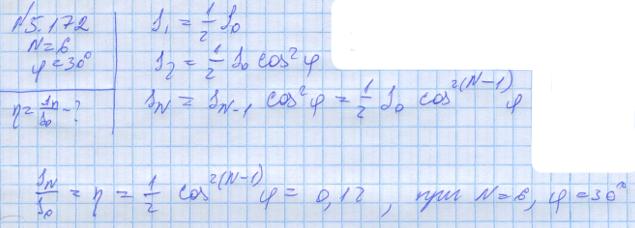 №5.172
N=6
φ=30°
η=Iₙ/I₀-?
I₁ = 1/2 I₀
I₂ = 1/2 I₀ cos²φ
I_N = I_{N-1} cos²φ = 1/2 I₀ cos^{2(N-1)} φ
I_N/I₀ = η = 1/2 cos^{2(N-1)} φ = 0,12 , при N=6, φ=30°